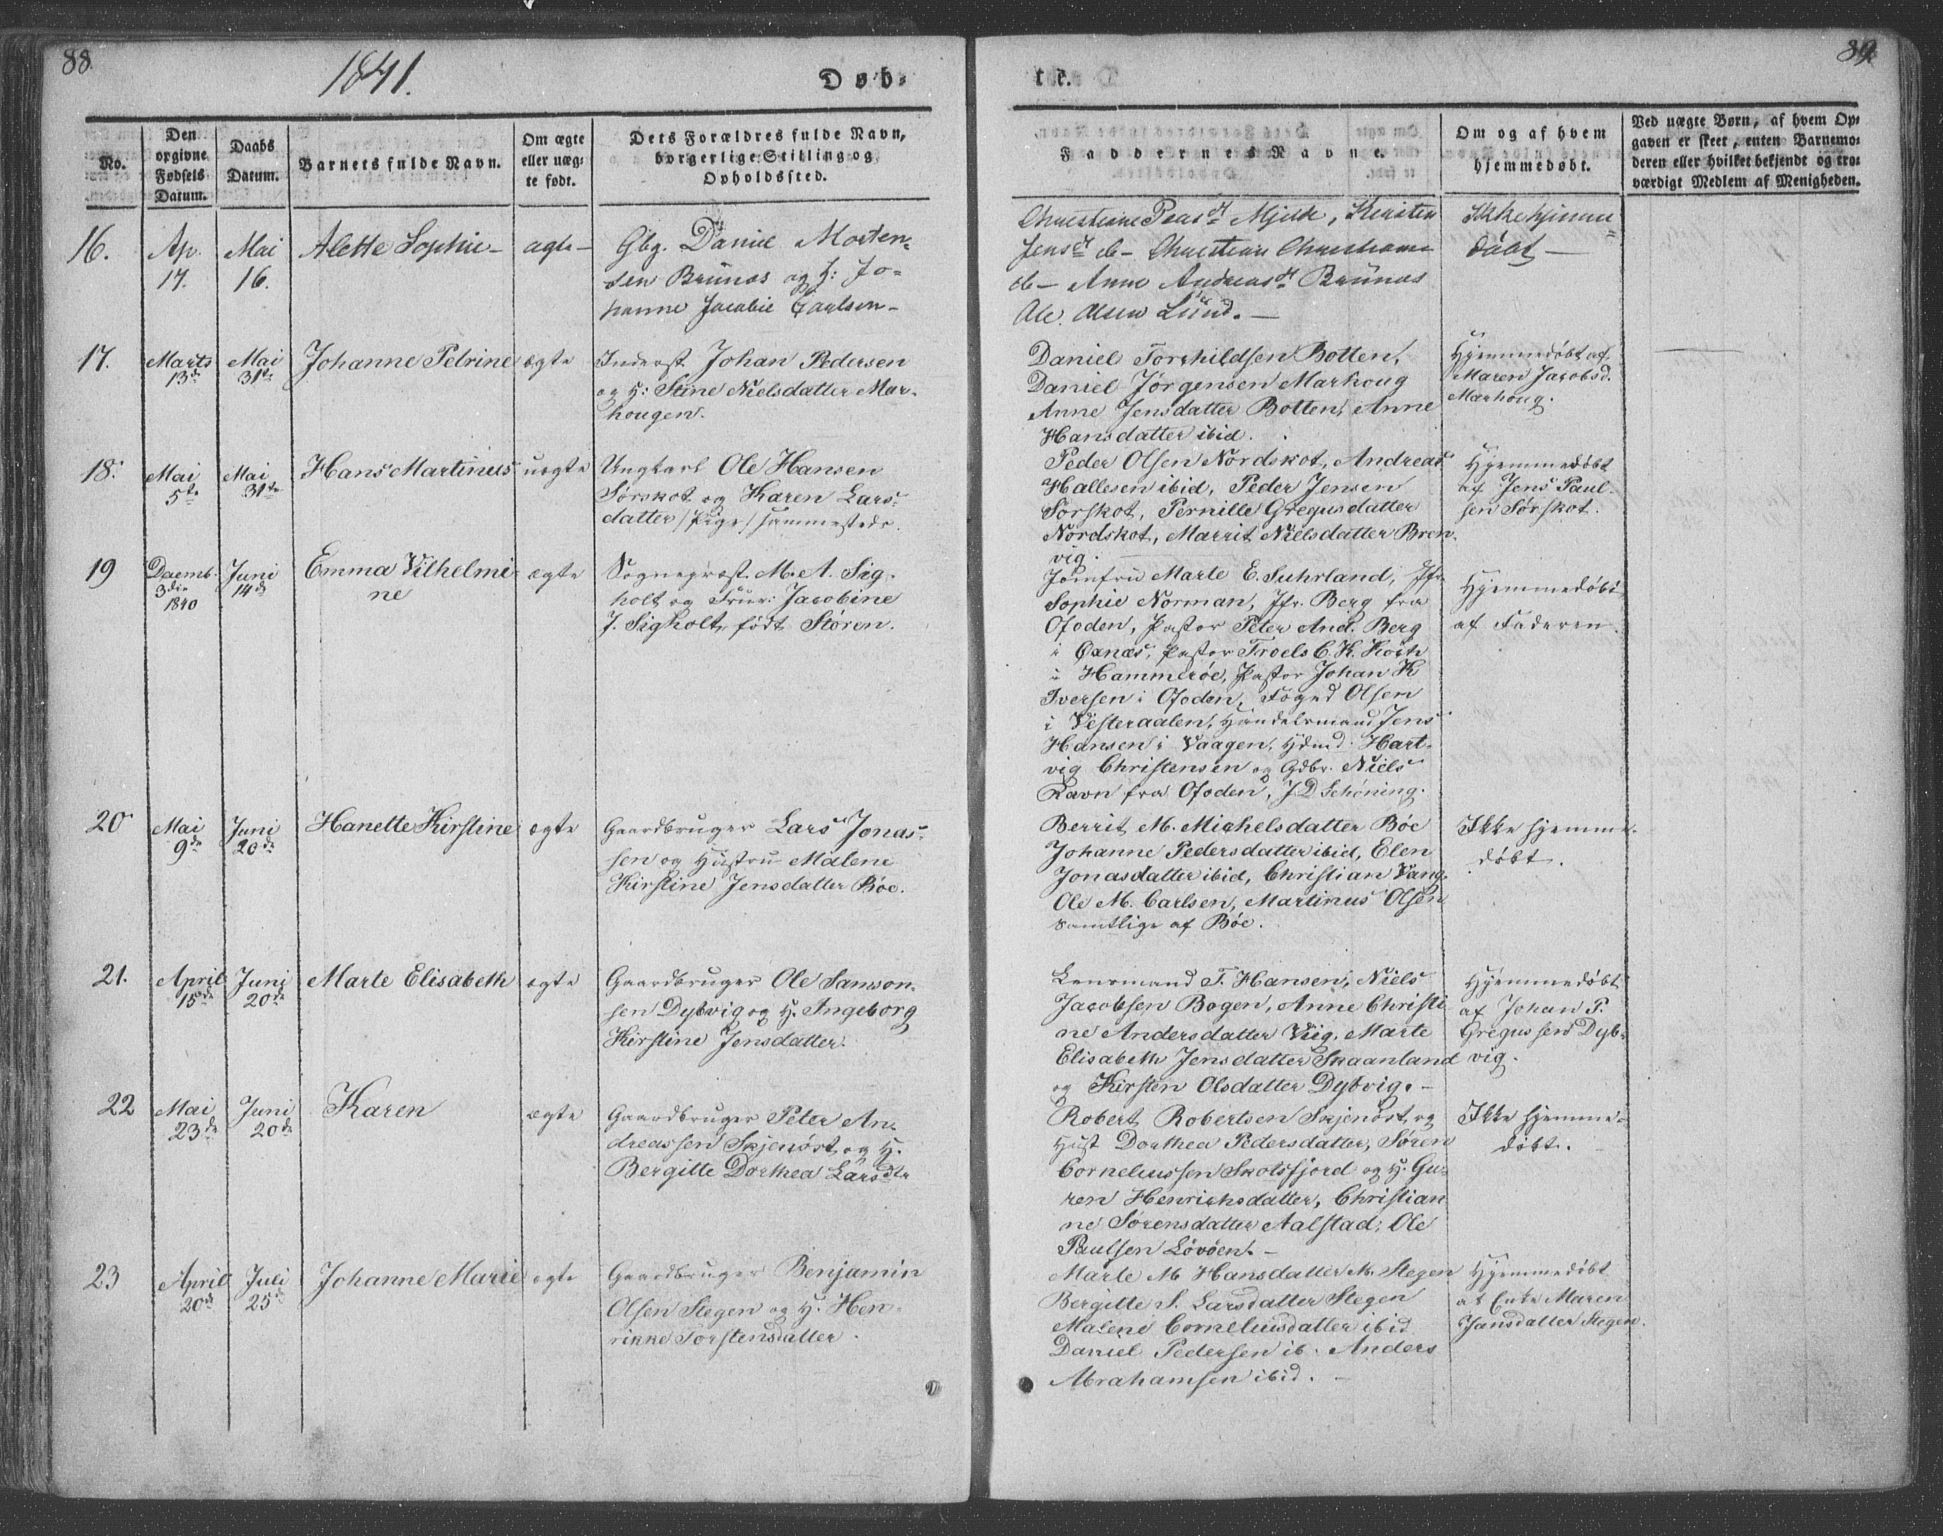 88
1841.
Døb-
No.
Den
orgivne
Fødsels
Datum.
Daabs
Datum.
Barnets fulde Navn.
Om ægte
eller uæg-
te født.
Dets Forældres fulde Navn,
borgerlige Stilling og
Opholdssted.
16.
Ap.
17.
Mai
16.
Alette Sophie
ægte
Gbg. Daniel Morten-
sen Brunæs og H: Jo-
hanne Jacobie Carlsen
17.
Marts
13de
Mai
31te
Johanne Petrine
ægte
Inderst Johan Pedersen
og H: Stine Nielsdatter Mar-
hougen.
18.
Mai
5te
Mai
31te
Hans Martinus
uægte
Ungkarl Ole Hansen
Sørskot og Karen Lars-
datter /Pige/ sammesteds.
19
Decemb.
3die
1840
Juni
14de
Emma Vilhelmi-
ne
ægte
Sognepræst M. A. Sig-
holt og Frue: Jacobine
J. Sigholt, født Støren.
20
Mai
9de
Juni
20de
Hanette Kirstine
ægte
Gaardbruger Lars Jonas-
sen og Hustru Malene
Kirstine Jensdatter Bøe.
21.
April
15de
Juni
20de
Marte Elisabeth
ægte
Gaardbruger Ole Samson-
sen Dybvig og H. Ingeborg
Kirstine Jensdatter.
22
Mai
23de
Juni
20de
Karen
ægte
Gaardbruger Peter An-
dreassen Skjenøst, og H.
Bergitte Dorthea Larsdtr
23
April
20de
Juli
25de
Johanne Marie
ægte
Gaardbruger Benjamin
Olsen Stegen og H. Hen-
rikke Torstensdatter.
89
te.
Faddernes Navne.
Om og af hvem
hjemmedøbt.
Ved uægte Børn, af hvem Op-
gaven er skeet, enten Barnemo-
deren eller hvilket bekjendt og tro-
værdigt Medlem af Menigheden.
Christiane Kersten
Jensdt do Christian
do Anne Andreasdt Brunæs
Ole Olsen Lund.
Ikke hjemme-
døbt
Daniel Torchildsen Botten,
Daniel Jørgensen Marhoug
Anne Jensdatter Botten, Anne
Hansdatter ibid.
Hjemmedøbt af
Maren Jacobsd.
Marhoug.
Peder Olsen Nordskot, Andreas
Hallesen ibid, Peder Jensen
Sørskot, Pernille Gregusdatter
Nordskot, Marrit Nielsdatter Bren-
vig.
Hjemmedøbt
af Jens Paul-
sen Sørskot.
Jomfru Marte E. Suhrland, Jfr.
Sophie Norman, Jfr. Berg fra
Ofoden, Pastor Peter And. Berg
i Øxnæs, Pastor Troels C. K. Koch
i Hammerøe, Pastor Johan K
Iversen i Ofoden, Foged Olsen
i Vesteraalen, Handelsmand Jens
Hansen i Vaagen, Hdmd. Hart-
vig Christensen og Gdbr. Niels
Ravn fra Ofoden, J D Schøning.
Hjemmedøbt
af Faderen.
Berrit M. Michelsdatter Bøe
Johanne Pedersdatter ibid, Elen
Jonasdatter ibid, Christian Vang,
Ole M. Carlsen, Martinus Olsen
samtlige af Bøe.
Ikke hjemme-
døbt.
Lensmand T. Hansen, Niels
Jacobsen Bogen, Anne Christi-
ne Andersdatter Viig, Marte
Elisabeth Jensdatter Skaanland
og Kirsten Olsdatter Dybvig.
Hjemmedøbt
af Johan P.
Gregussen Dyb-
vig.
Robert Robertsen Skjenøst, og
Hust Dorthea Pedersdatter, Søren
Corneliussen Skotsfjord og H. Gu-
ren Henrichsdatter, Christian-
ne Sørensdatter Aalstad, Ole
Paulsen Løvøen.
Ikke hjemme-
døbt.
Marte M Hansdatter M. Stegen
Bergitte S. Larsdatter Stegen
Malene Corneliusdatter ibid
Daniel Pedersen ib. Anders
Abrahamsen ibid.
Hjemmedøbt
af Enke Maren
Jansdatter Stegen.